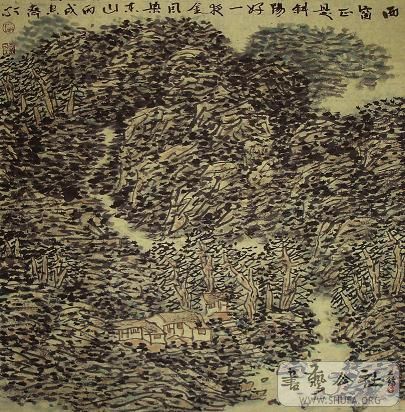 西窗正是斜陽好一夜金風染东山丙戌
書藝公社
WWW.SHUFA.ORG